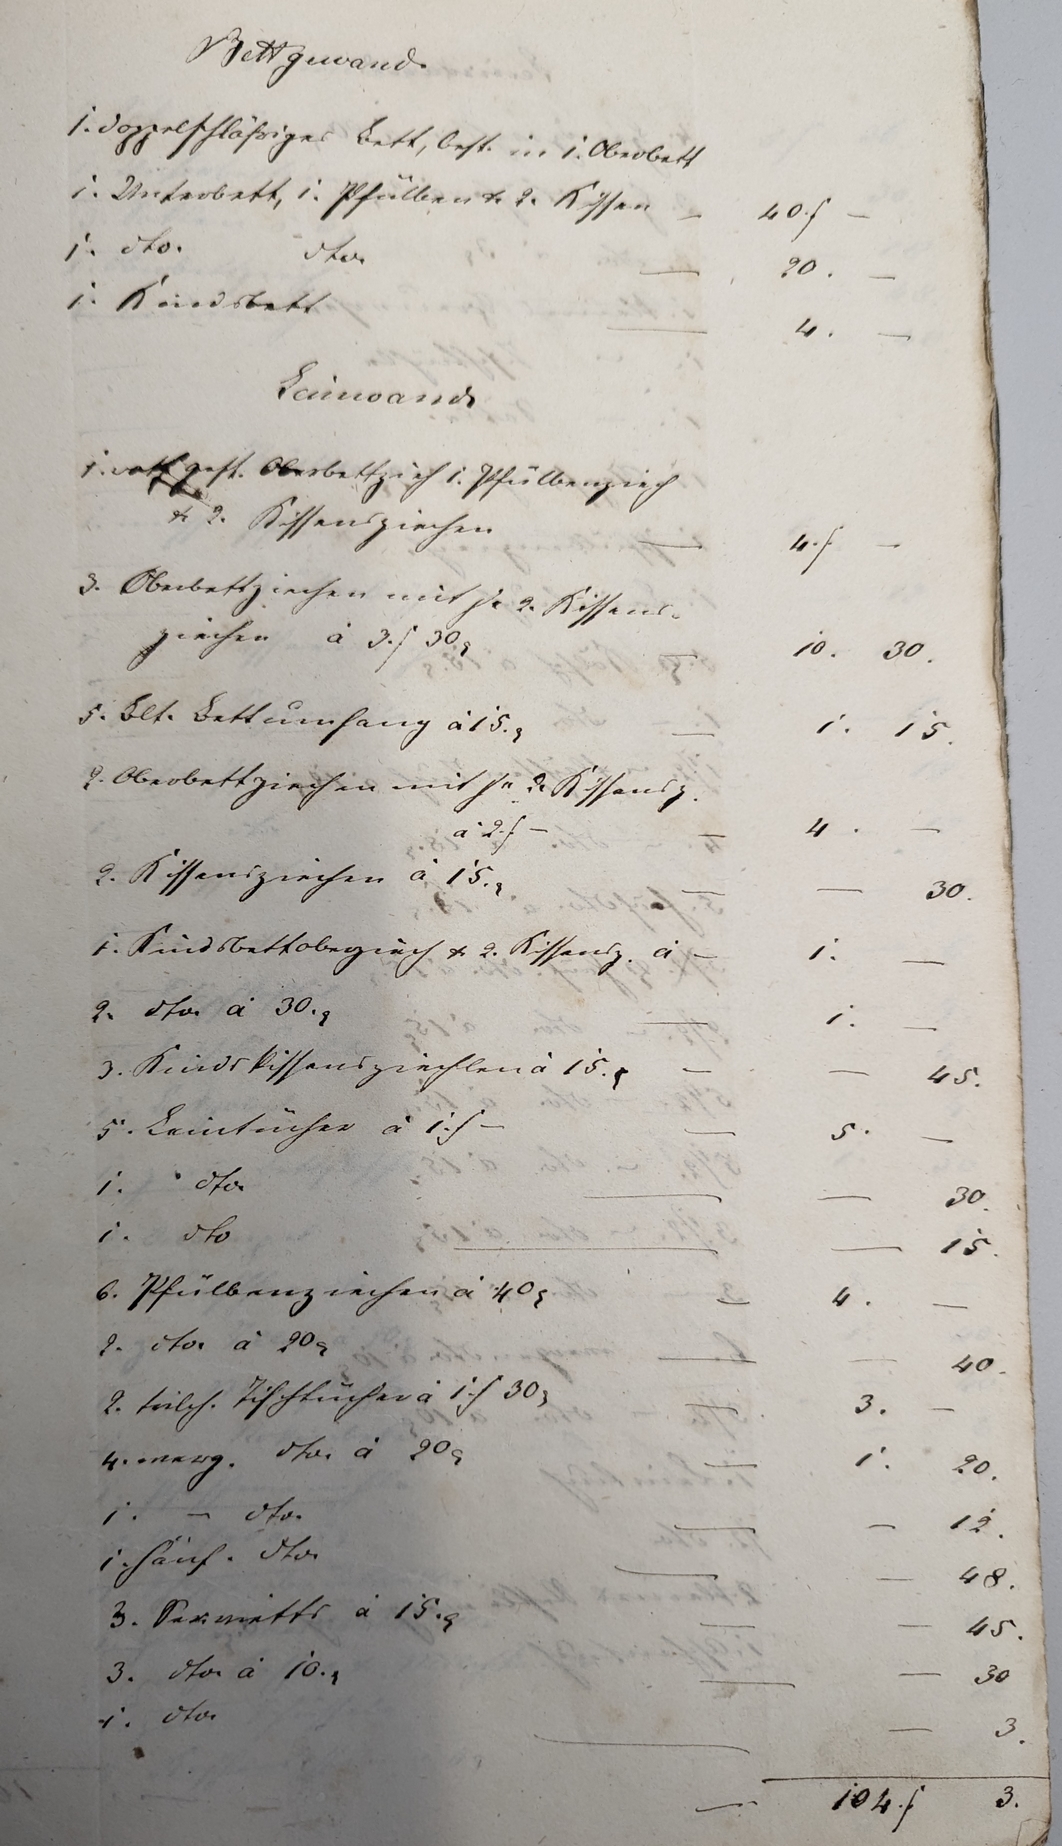 Bettgewand.
1. doppelschläfriges Bett, best. in 1. Oberbett
1. Unterbett, 1. Pfülben & 2. Kissen — 40.f —
1. dto. dto. — 20. —
1. Kindsbett — 4. —
Leinwand
1. gest. Oberbettziech 1. Pfülbenziech
& 2. Kissensziechen — 4.f —
3. Oberbettziechen mit je 2. Kissens-
ziechen à 3.f 30 — 10. 30.
5. Blt. Bettumhang à 15. — 1. 15.
2. Oberbettziechen mit je 2. Kissensz.
à 2.f — — 4. —
2. Kissensziechen à 15. — — 30.
1. Kindsbettoberziech & 2. Kissensz. à — 1. —
2. dto. à 30. — 1. —
3. Kindskissensziechlen à 15. — — 45.
5. Leintücher à 1.f — — 5. —
1. dto. — — 30.
1. dto — — 15.
6. Pfülbenziechen à 40 — 4. —
2. dto. à 20 — — 40.
2. trilch. Tischtücher à 1.f 30 — 3. —
4. werg. dto. à 20 — 1. 20.
1. — dto. — — 12.
1. hänf. dto. — — 48.
3. Servietts à 15. — — 45.
3. dto. à 10. — — 30
1. dto. — — 3.
— 104.f 3.